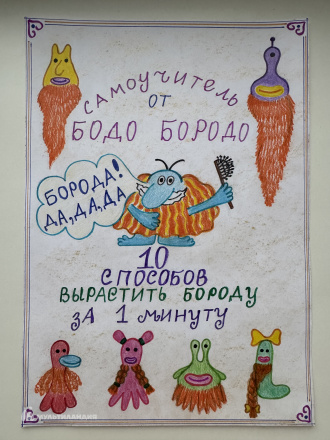 САМОУЧИТЕЛЬ
ОТ
БОДО БОРОДО
БОРОДА!
ДА, ДА, ДА
10
СПОСОБОВ
ВЫРАСТИТЬ БОРОДУ
ЗА 1 МИНУТУ